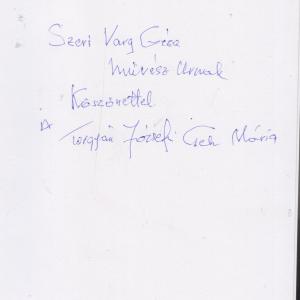 Szeri Varg Géza
Művész Úrnak
Köszönettel
Dr Torgyán József Cseh Mária